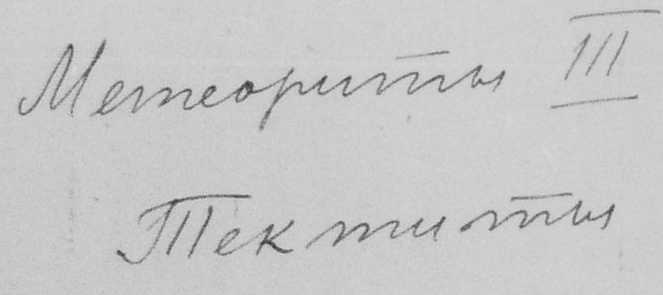 Метеориты III
Тектиты